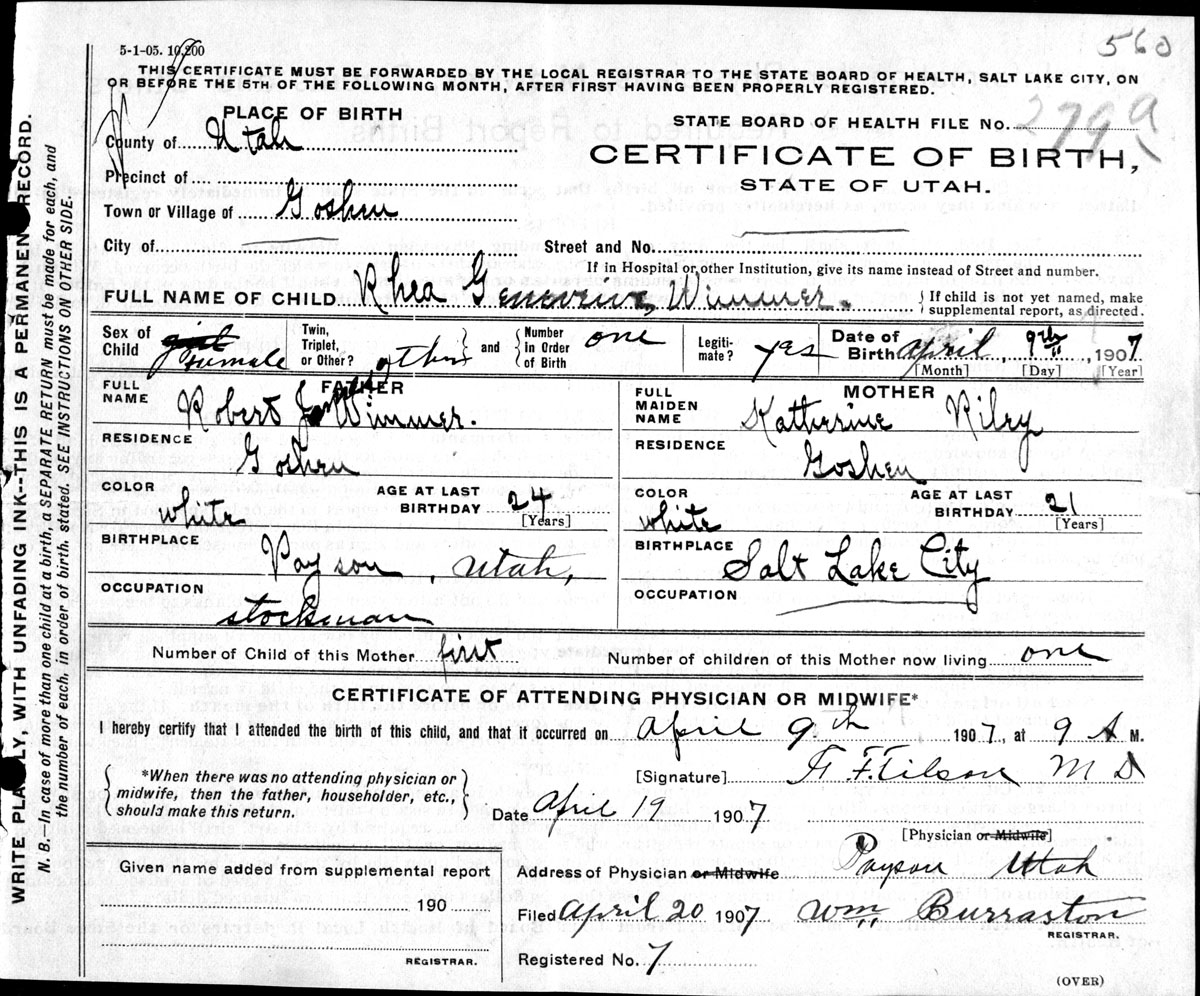 5-1-05. 10,200
560
THIS CERTIFICATE MUST BE FORWARDED BY THE LOCAL REGISTRAR TO THE STATE BOARD OF HEALTH, SALT LAKE CITY, ON
OR BEFORE THE 5TH OF THE FOLLOWING MONTH, AFTER FIRST HAVING BEEN PROPERLY REGISTERED.
PLACE OF BIRTH
County of Utah
Precinct of
Town or Village of Goshen
City of
STATE BOARD OF HEALTH FILE No. 279
CERTIFICATE OF BIRTH,
STATE OF UTAH.
Street and No.
If in Hospital or other Institution, give its name instead of Street and number.
FULL NAME OF CHILD Rhea Wimmer.
{ If child is not yet named, make
supplemental report, as directed.
Sex of Child girl Female
Twin, Triplet, or Other? other } and { Number in Order of Birth one
Legiti-mate? yes
Date of Birth April, 9th, 1907
[Month] [Day] [Year]
FATHER
FULL NAME Robert Wimmer.
RESIDENCE Goshen
COLOR white
AGE AT LAST BIRTHDAY 24
[Years]
BIRTHPLACE Payson, Utah,
OCCUPATION stockman
MOTHER
FULL MAIDEN NAME Katherine Riley
RESIDENCE Goshen
COLOR white
AGE AT LAST BIRTHDAY 21
[Years]
BIRTHPLACE Salt Lake City
OCCUPATION
Number of Child of this Mother first
Number of children of this Mother now living one
CERTIFICATE OF ATTENDING PHYSICIAN OR MIDWIFE*
I hereby certify that I attended the birth of this child, and that it occurred on April 9th 1907, at 9 A M.
{ *When there was no attending physician or
midwife, then the father, householder, etc.,
should make this return. }
[Signature] Tilson M D
Date April 19 1907
[Physician or Midwife]
Address of Physician or Midwife Payson Utah
Given name added from supplemental report
190
REGISTRAR.
Filed April 20 1907 Wm. Burraston
REGISTRAR.
Registered No. 7
(OVER)
WRITE PLAINLY, WITH UNFADING INK--THIS IS A PERMANENT RECORD.
N. B.—In case of more than one child at a birth, a SEPARATE RETURN must be made for each, and
the number of each, in order of birth, stated. SEE INSTRUCTIONS ON OTHER SIDE.